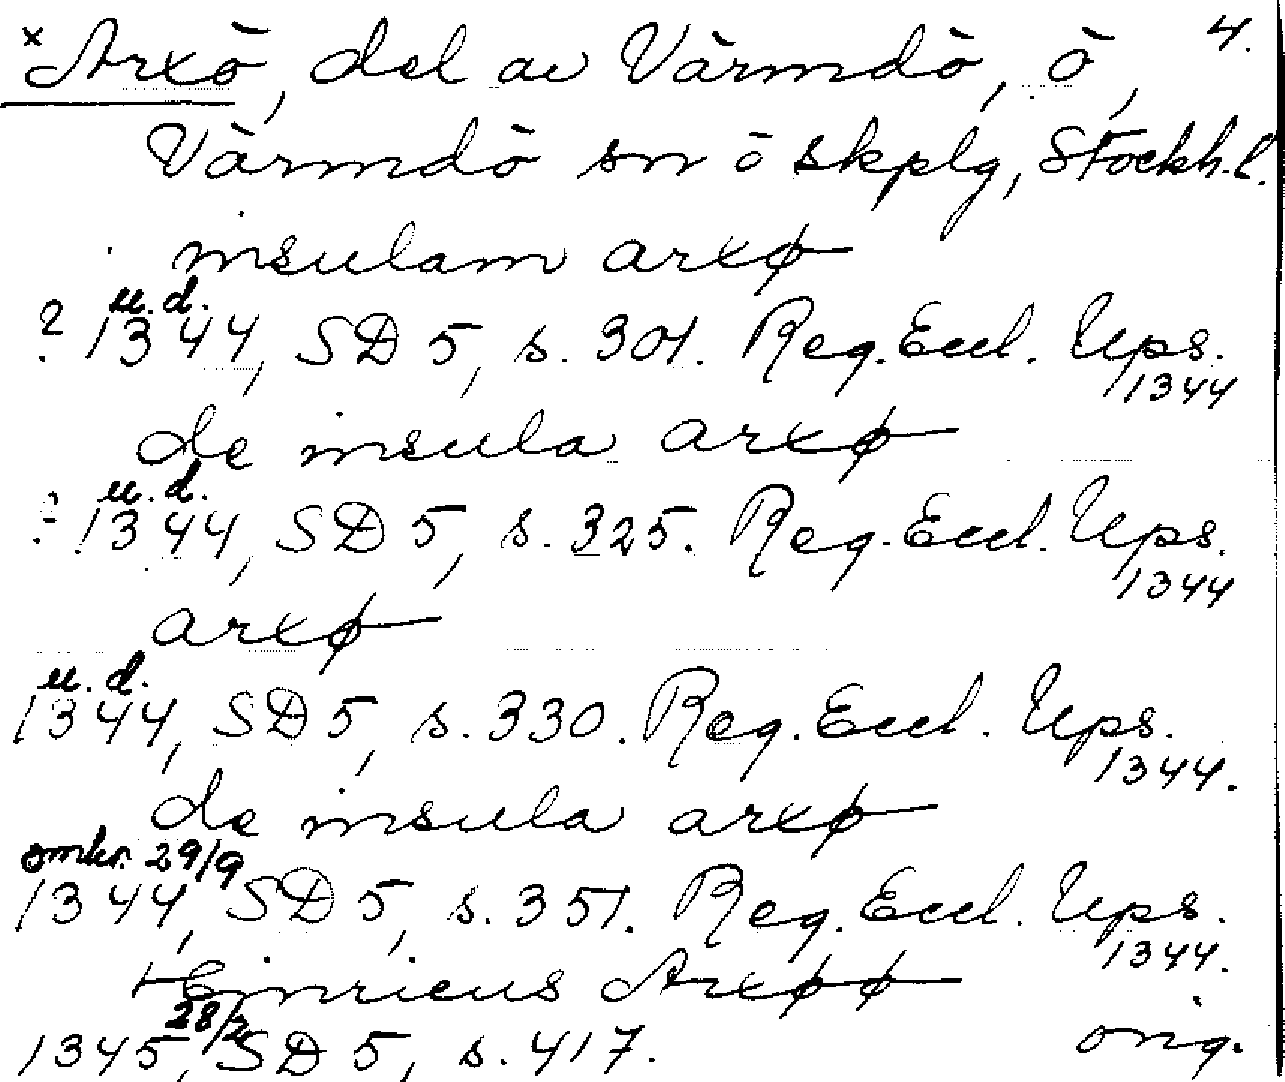 × Arxö, del av Värmdö, ö, 4.
Värmdö sn o skplg, Stockh.l.
insulam arxø
u.d.
? 1344, SD 5, s. 301. Reg. Eccl. Ups. 1344
de insula arxø
u.d.
? 1344, SD 5, s. 325. Reg. Eccl. Ups. 1344
arxø
u.d.
1344, SD 5, s. 330. Reg. Eccl. Ups. 1344.
de insula arxø
omkr. 29/9
1344, SD 5, s. 351. Reg. Eccl. Ups. 1344.
Heinricus Arxøø
28/2
1345, SD 5, s. 417. orig.